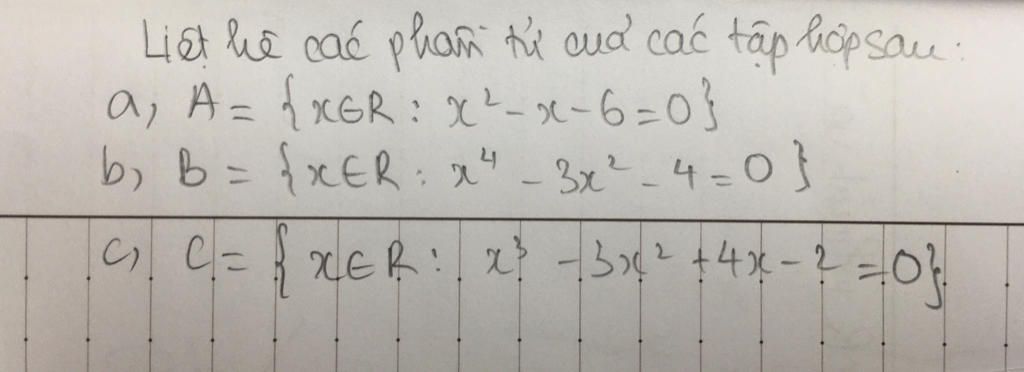 Liệt kê các phần tử của các tập hợp sau:
a, A = {x∈R : x² - x - 6 = 0}
b, B = {x∈R : x⁴ - 3x² - 4 = 0}
c, C = {x∈R : x³ - 3x² + 4x - 2 = 0}